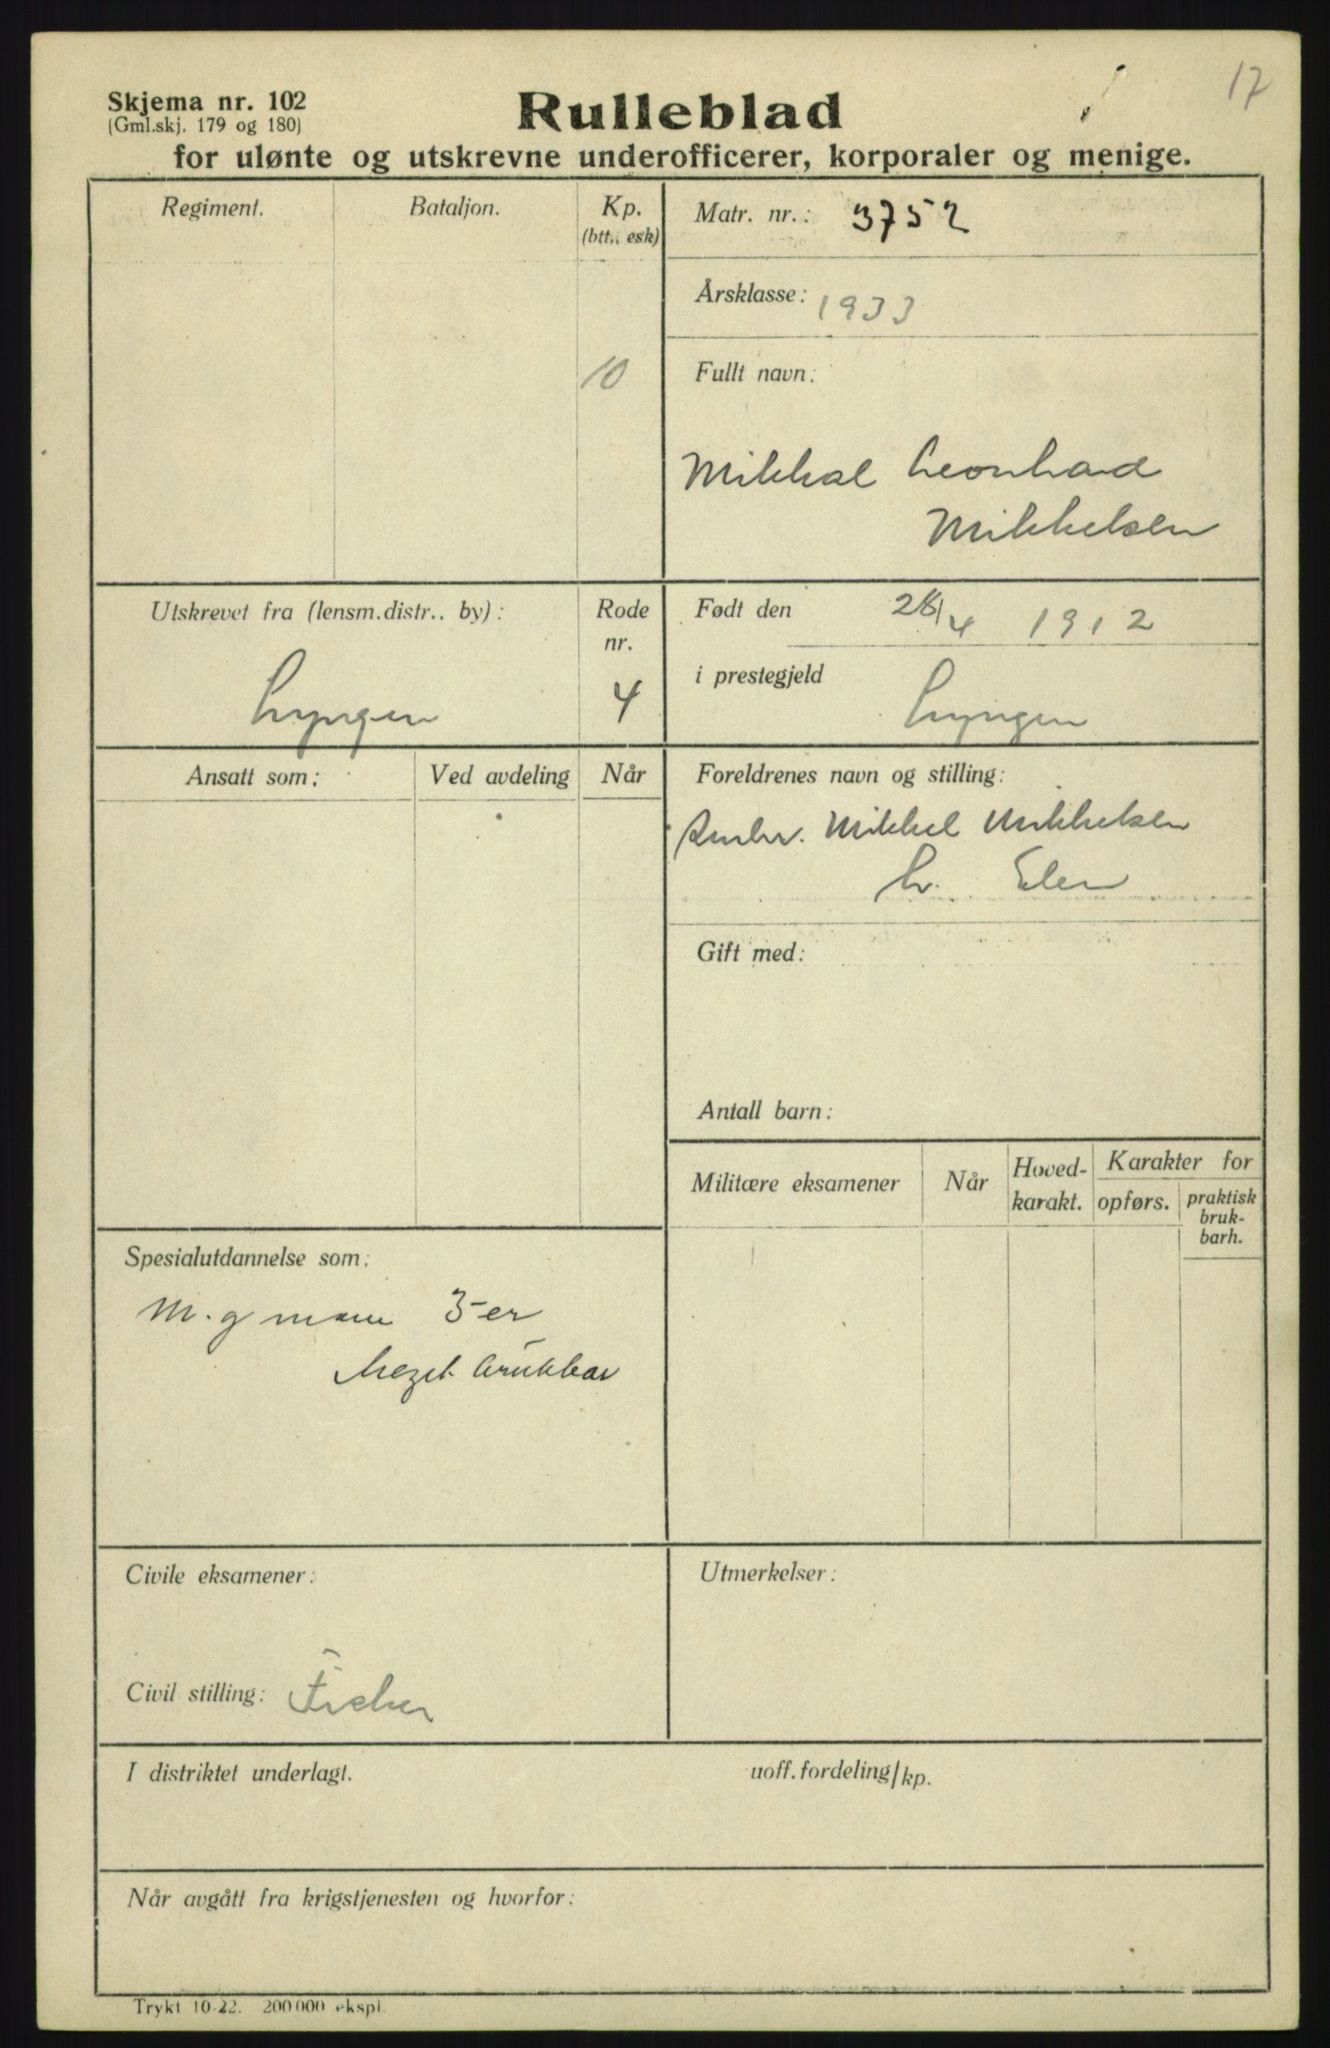 17
Skjema nr. 102
(Gml.skj. 179 og 180)
Rulleblad
for ulønte og utskrevne underofficerer, korporaler og menige.
Regiment.
Bataljon.
Kp.
(btt., esk)
10
Matr. nr.: 3752
Årsklasse: 1933
Fullt navn:
Mikkal Leonhard
Mikkelsen
Utskrevet fra (lensm.distr.. by):
Lyngen
Rode
nr.
4
Født den 28/4 1912
i prestegjeld Lyngen
Ansatt som:
Ved avdeling
Når
Foreldrenes navn og stilling:
Mikkel Mikkelsen
Elen
Gift med:
Antall barn:
Militære eksamener
Når
Hoved-
karakt.
Karakter for
opførs.
praktisk
bruk-
barh.
Spesialutdannelse som:
M.g mann 3-er
Meget brukbar
Civile eksamener:
Civil stilling: Fisker
Utmerkelser:
I distriktet underlagt.
uoff.fordeling/kp.
Når avgått fra krigstjenesten og hvorfor:
Trykt 10-22. 200000 ekspl.